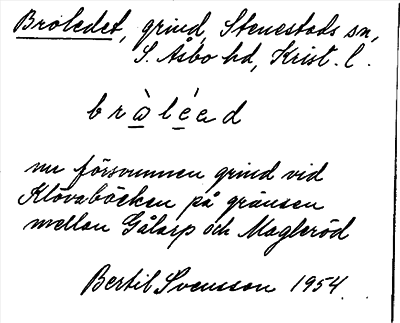 Broledet, grind, Stenestads sn,
S. Åsbo hd, Krist. l.
br<u>à</u>l<u>é</u>ad
nu försvunnen grind vid
Klövabäcken på gränsen
mellan Gålarp och Magleröd
Bertil Svensson 1954